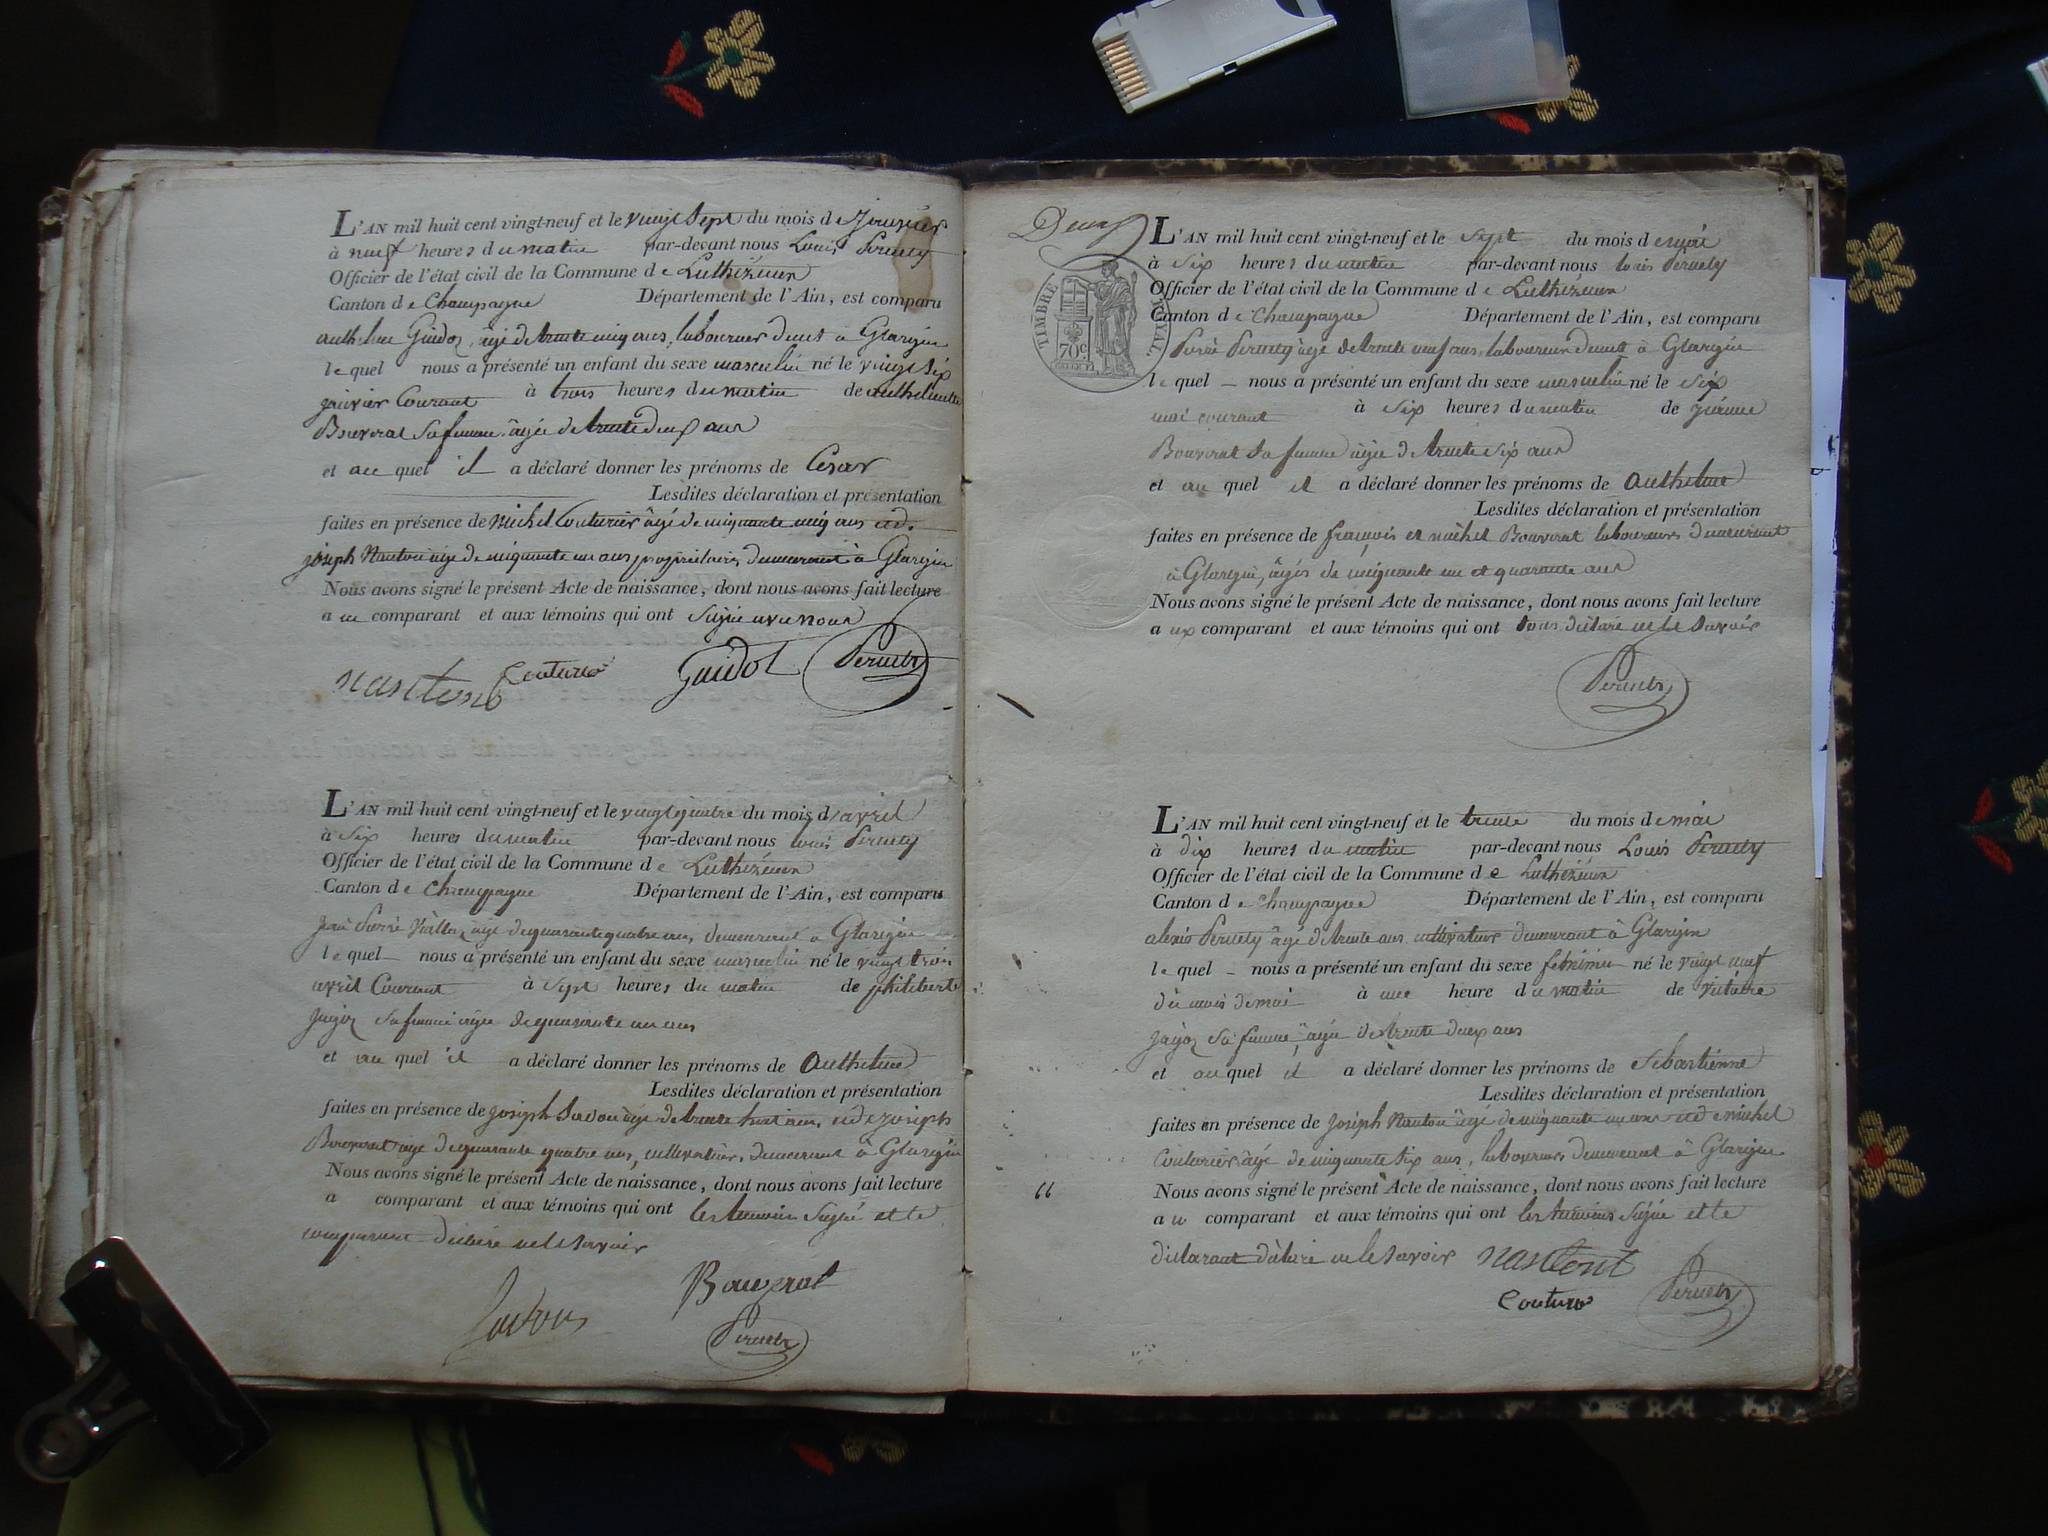 L'AN mil huit cent vingt-neuf et le vingt sept du mois de Janvier
à neuf heures du matin par-devant nous Louis Perucly
Officier de l'état civil de la Commune de Luthézieu
Canton de Champagne Département de l'Ain, est comparu
anthelme Guidoz, âgé de trente cinq ans, laboureur demt à Glargin
lequel nous a présenté un enfant du sexe masculin né le vingt six
janvier Courant à trois heures du matin de anthelmette
Bouverat sa femme âgée de trente deux ans
et au quel il a déclaré donner les prénoms de Cesar
Lesdites déclaration et présentation
faites en présence de Michel Couturier âgé de cinquante cinq ans et de
joseph Nanton âgé de cinquante un ans propriétaires demeurant à Glargin
Nous avons signé le présent Acte de naissance, dont nous avons fait lecture
au comparant et aux témoins qui ont signé avec nous
nantond Couturié Guidot
L'AN mil huit cent vingt-neuf et le vingt quatre du mois d'avril
à six heures du matin par-devant nous louis Perucly
Officier de l'état civil de la Commune de Luthézieu
Canton de Champagne Département de l'Ain, est comparu
jean Pierre âgé de quarante quatre ans, demeurant à Glargin
lequel nous a présenté un enfant du sexe masculin né le vingt trois
avril Courant à sept heures du matin de philiberte
Jayoz sa femme âgée de quarante un ans
et au quel il a déclaré donner les prénoms de Anthelme
Lesdites déclaration et présentation
faites en présence de joseph âgé de trente huit ans, et de joseph
Bouverat âgé de quarante quatre ans, cultivateurs, demeurant à Glargin
Nous avons signé le présent Acte de naissance, dont nous avons fait lecture
a comparant et aux témoins qui ont les témoins signé et le
comparant déclaré ne le savoir
Bouverat
Deux
TIMBRE ROYAL
70c
L'AN mil huit cent vingt-neuf et le sept du mois de mai
à six heures du matin par-devant nous louis Perucly
Officier de l'état civil de la Commune de Luthézieu
Canton de Champagne Département de l'Ain, est comparu
Pierre Perucly âgé de trente neuf ans, laboureur demt à Glargin
lequel nous a présenté un enfant du sexe masculin né le six
mai courant à six heures du matin de jeanne
Bouverat sa femme âgée de trente six ans
et au quel il a déclaré donner les prénoms de Anthelme
Lesdites déclaration et présentation
faites en présence de françois et michel Bouverat laboureurs demeurant
à Glargin, âgés de cinquante un et quarante ans
Nous avons signé le présent Acte de naissance, dont nous avons fait lecture
aux comparant et aux témoins qui ont tous déclaré ne le savoir
L'AN mil huit cent vingt-neuf et le trente du mois de mai
à dix heures du matin par-devant nous Louis Perucly
Officier de l'état civil de la Commune de Luthézieu
Canton de Champagne Département de l'Ain, est comparu
alexis Perucly âgé de trente ans cultivateur demeurant à Glargin
lequel nous a présenté un enfant du sexe féminin né le vingt neuf
du mois de mai à une heure du matin de
Jayoz sa femme, âgée de trente deux ans
et au quel il a déclaré donner les prénoms de Sebastienne
Lesdites déclaration et présentation
faites en présence de Joseph Nanton âgé de cinquante un ans et de michel
Couturier âgé de cinquante six ans, laboureurs demeurant à Glargin
66
Nous avons signé le présent Acte de naissance, dont nous avons fait lecture
au comparant et aux témoins qui ont les témoins signé et le
déclarant déclaré ne le savoir nantond
Couturié